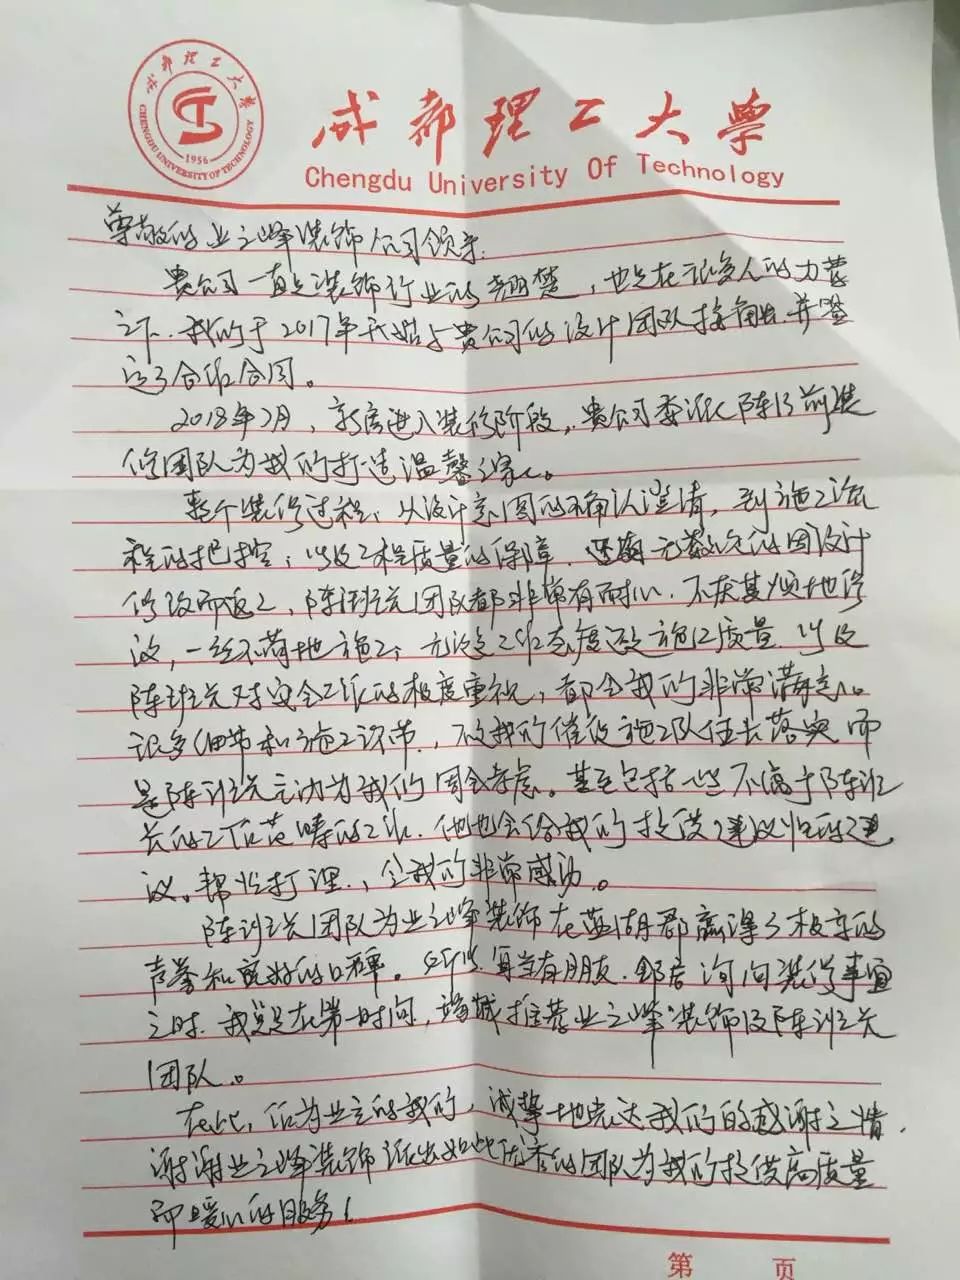 成都理工大学
CHENGDU UNIVERSITY OF TECHNOLOGY
1956
成都理工大学
Chengdu University Of Technology
尊敬的业之峰装饰公司领导:
贵公司一直是装饰行业的翘楚,也是在很多人的力荐
之下,我们于2017年开始与贵公司的设计团队接触,并签
定了合作合同。
2018年7月,新房进入装修阶段,贵公司委派陈班前装
修团队为我们打造温馨之家。
整个装修过程,从设计意图的确认澄清,到施工流
程的把控,以及工程质量的保障,无数次的因设计
修改而返工,陈班长团队都非常有耐心,不厌其烦地修
改,一丝不苟地施工,无论是工作态度还是施工质量,以及
陈班长对安全工作的极度重视,都令我们非常满意。
很多细节和施工环节,不是我们催促施工队伍去落实而
是陈班长主动为我们周全考虑。甚至包括一些不属于陈班
长的工作范畴的工作,他也会给我们提供建议性的建
议,帮忙打理,令我们非常感动。
陈班长团队为业之峰装饰在蓝湖郡赢得了极高的
声誉和良好的口碑。所以,每当有朋友、邻居询问装修事宜
之时,我总是在第一时间,竭诚推荐业之峰装饰及陈班长
团队。
在此,作为业主的我们,诚挚地表达我们的感谢之情,
谢谢业之峰装饰派出如此优秀的团队为我们提供高质量
而暖心的服务!
第 页